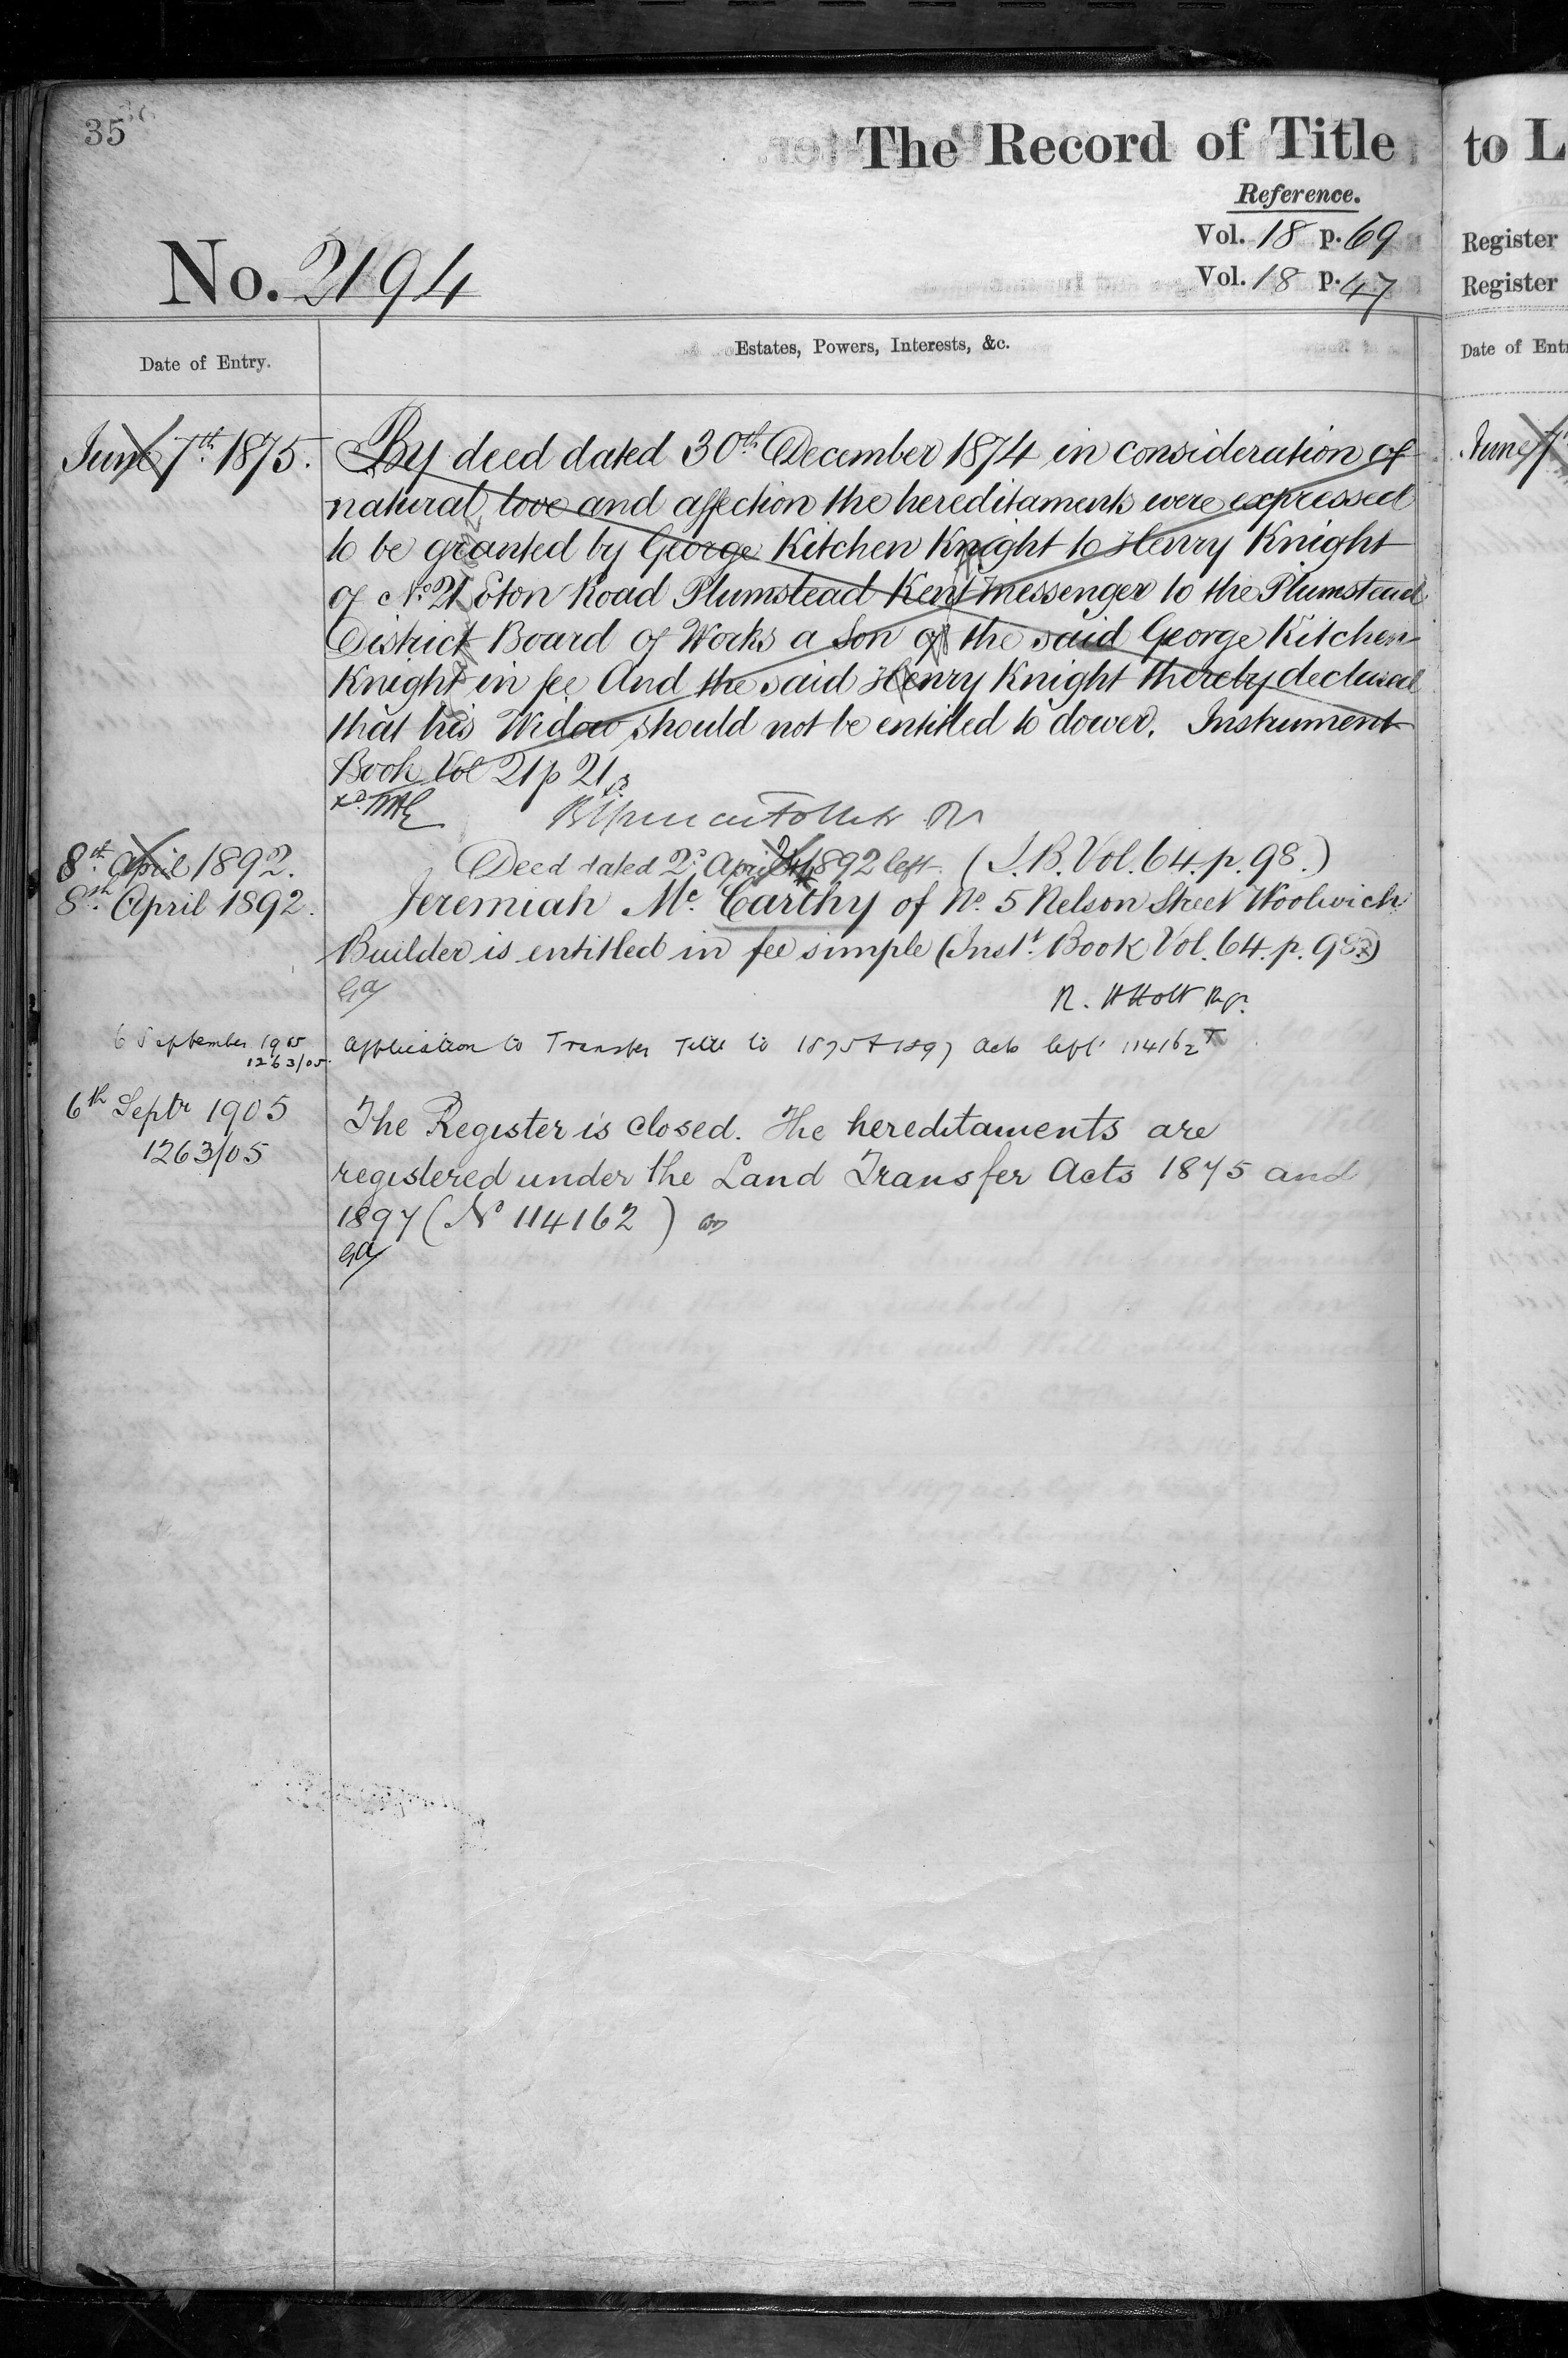 35
The Record of Title
Reference.
Vol. 18 p. 69
Vol. 18 p. 47
No. 2194
Date of Entry.
Estates, Powers, Interests, &c.
June 7th 1875.
By deed dated 30th December 1874 in consideration of
natural love and affection the hereditaments were expressed
to be granted by George Kitchen Knight to Henry Knight
of No. 21 Eton Road Plumstead Kent Messenger to the Plumstead
District Board of Works a Son of the said George Kitchen
Knight in fee And the said Henry Knight thereby declared
that his Widow should not be entitled to dower. Instrument
Book Vol 21 p 21.
8th April 1892.
Deed dated 2d April 1892 left. (I.B. Vol. 64. p. 98.)
8th April 1892.
Jeremiah Mc. Carthy of No. 5 Nelson Street Woolwich
Builder is entitled in fee simple (Inst. Book Vol. 64. p. 98.)
R. H Holt Regr.
6 September 1905
1263/05.
Application to Transfer Title to 1875 & 1897 Acts left 114162
6th Septr 1905
1263/05
The Register is closed. The hereditaments are
registered under the Land Transfer Acts 1875 and
1897 (No 114162)
to L
Register
Register
Date of Ent
June 7